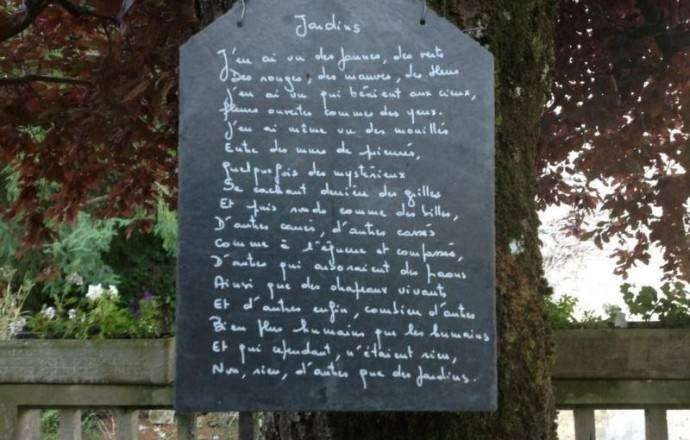 Jardins
J'en ai vu des jaunes, des verts
Des rouges, des mauves, des bleus
J'en ai vu qui béaient aux cieux,
fleurs ouvertes comme des yeux.
J'en ai même vu des mouillés
Entre des murs de pierres,
Quelquefois des mystérieux
Se cachant derrière des grilles
Et puis ronds comme des billes,
D'autres carrés, d'autres cassés
Comme à l'équerre et compassés,
D'autres qui arboraient des paons
Ainsi que des chapeaux vivants
Et d'autres enfin, combien d'autres
Bien plus humains que les humains
Et qui cependant, n'étaient rien,
Non, rien, d'autres que des Jardins.